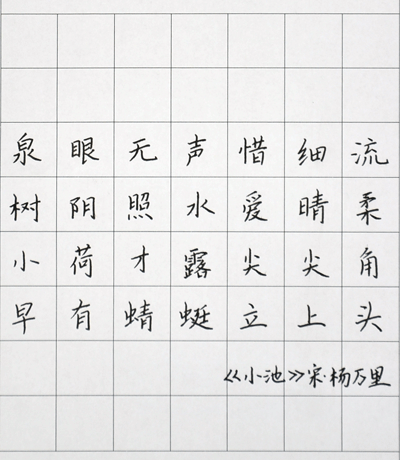 泉眼无声惜细流
树阴照水爱晴柔
小荷才露尖尖角
早有蜻蜓立上头
《小池》宋·杨万里